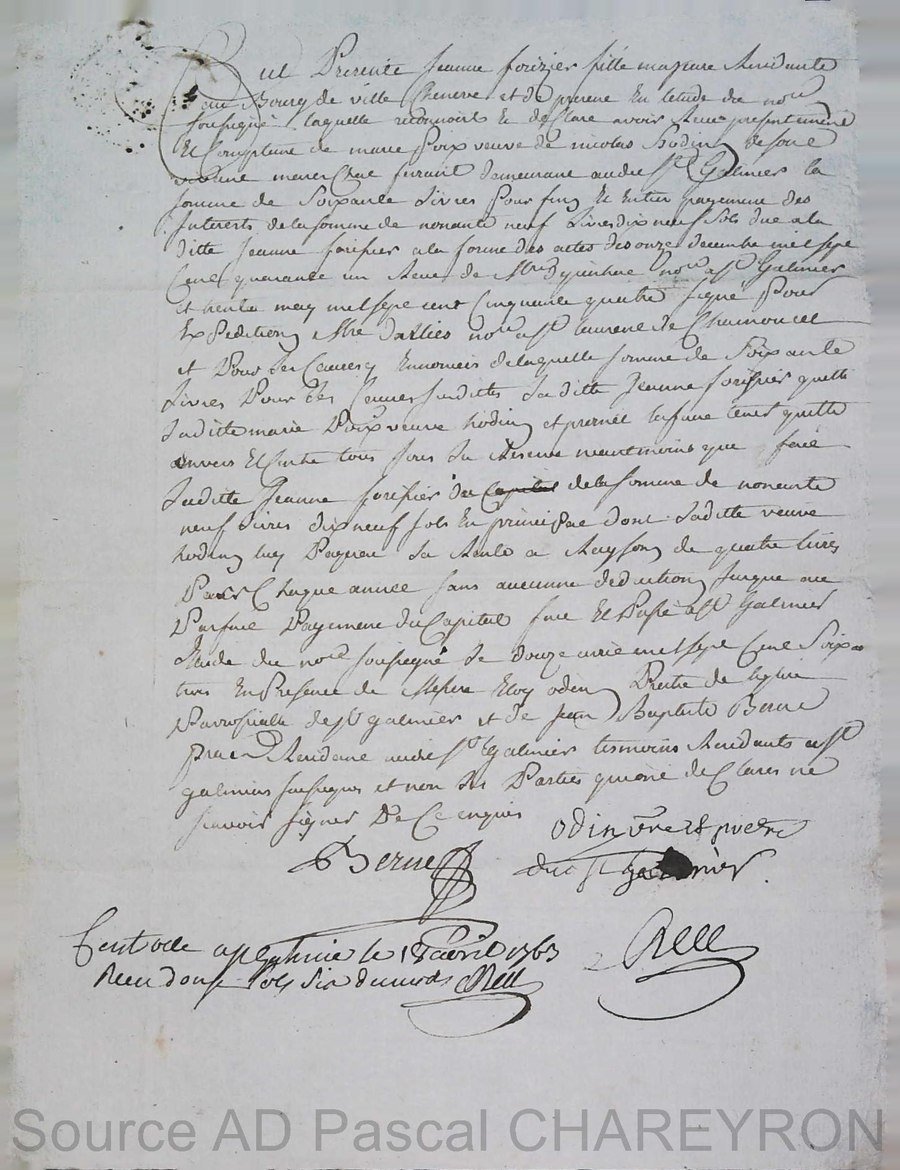 fut Presente Jeanne forizier fille majeure Residante
au Bourg de ville Cheneve et de presente En letude du no.re
soussigné laquelle reconnoit et declare avoir Receu presentement
Et Comptant de marie Poix veuve de nicolas hodin de son
vivant marechal demeurant audit St Galmier la
somme de Soixante Livres Pour fin Et Entier payement des
Interets de la somme de nonante neuf Livres dix neuf sols due a la
ditte Jeanne forisier a la forme des actes des onze decembre mil sept
Cent quarante un Receu de no.re a St Galmier
et trente may mil sept cent Cinquante quatre signé Pour
Expedition Mtre no.re a St laurent de Chamoucet
et Pour les Causes y Enoncés de laquelle somme de Soixante
Livres Pour les Causes susdittes laditte Jeanne forisier quitte
laditte marie Poix veuve hodin et promet la faire tenir quitte
envers Et contre tous sous la Reserve neantmoins que fait
laditte Jeanne forisier de la somme de nonante
neuf Livres dix neuf sols En principal dont laditte veuve
hodin luy Payera la Rente a Rayson de quatre livres
Par Chaque année sans aucunne deduction jusque au
Parfait Payement du Capital fait Et Passé a St Galmier
Etude du no.re soussigné le douze avril mil sept Cent Soixante
trois En Presence de Messire Eloy odin Pretre de leglise
Parroissialle de St galmier et de Jean Baptiste Berne
praen Residant audit St Galmier tesmoins Residants a St
galmier soussignes et non les Parties qui ont declares ne
scavoir signer De Ce enquis
odin pretre
Berne
du St galmier
Controllé a St galmier le 18 avril 1763
Receu douze sols Six deniers Rell
Rell
Source AD Pascal CHAREYRON